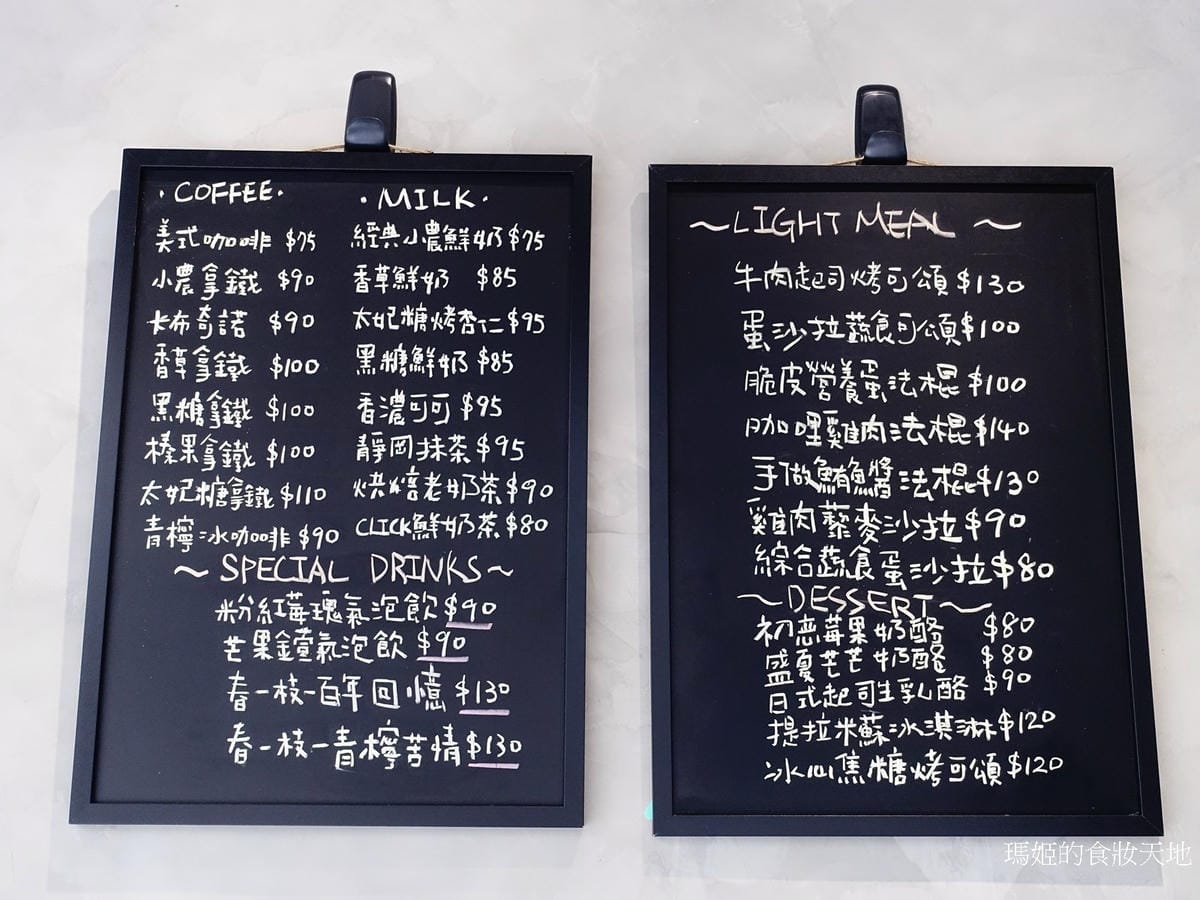 ·COFFEE·
美式咖啡 $75
小農拿鐵 $90
卡布奇諾 $90
香草拿鐵 $100
黑糖拿鐵 $100
榛果拿鐵 $100
太妃糖拿鐵 $110
青檸冰咖啡 $90
·MILK·
經典小農鮮奶 $75
香草鮮奶 $85
太妃糖烤杏仁 $95
黑糖鮮奶 $85
香濃可可 $95
靜岡抹茶 $95
烘焙老奶茶 $90
CLICK鮮奶茶 $80
~SPECIAL DRINKS~
粉紅莓瑰氣泡飲 $90
芒果鐘氣泡飲 $90
春一枝-百年回憶 $130
春一枝-青檸苦情 $130
~LIGHT MEAL~
牛肉起司烤可頌 $130
蛋沙拉蔬食可頌 $100
脆皮營養蛋法棍 $100
咖哩雞肉法棍 $140
手做鮪魚醬法棍 $130
雞肉藜麥沙拉 $90
綜合蔬食蛋沙拉 $80
~DESSERT~
初戀莓果奶酪 $80
盛夏芒芒奶酪 $80
日式起司生乳酪 $90
提拉米蘇冰淇淋 $120
冰心焦糖烤可頌 $120
瑪姬的食妝天地